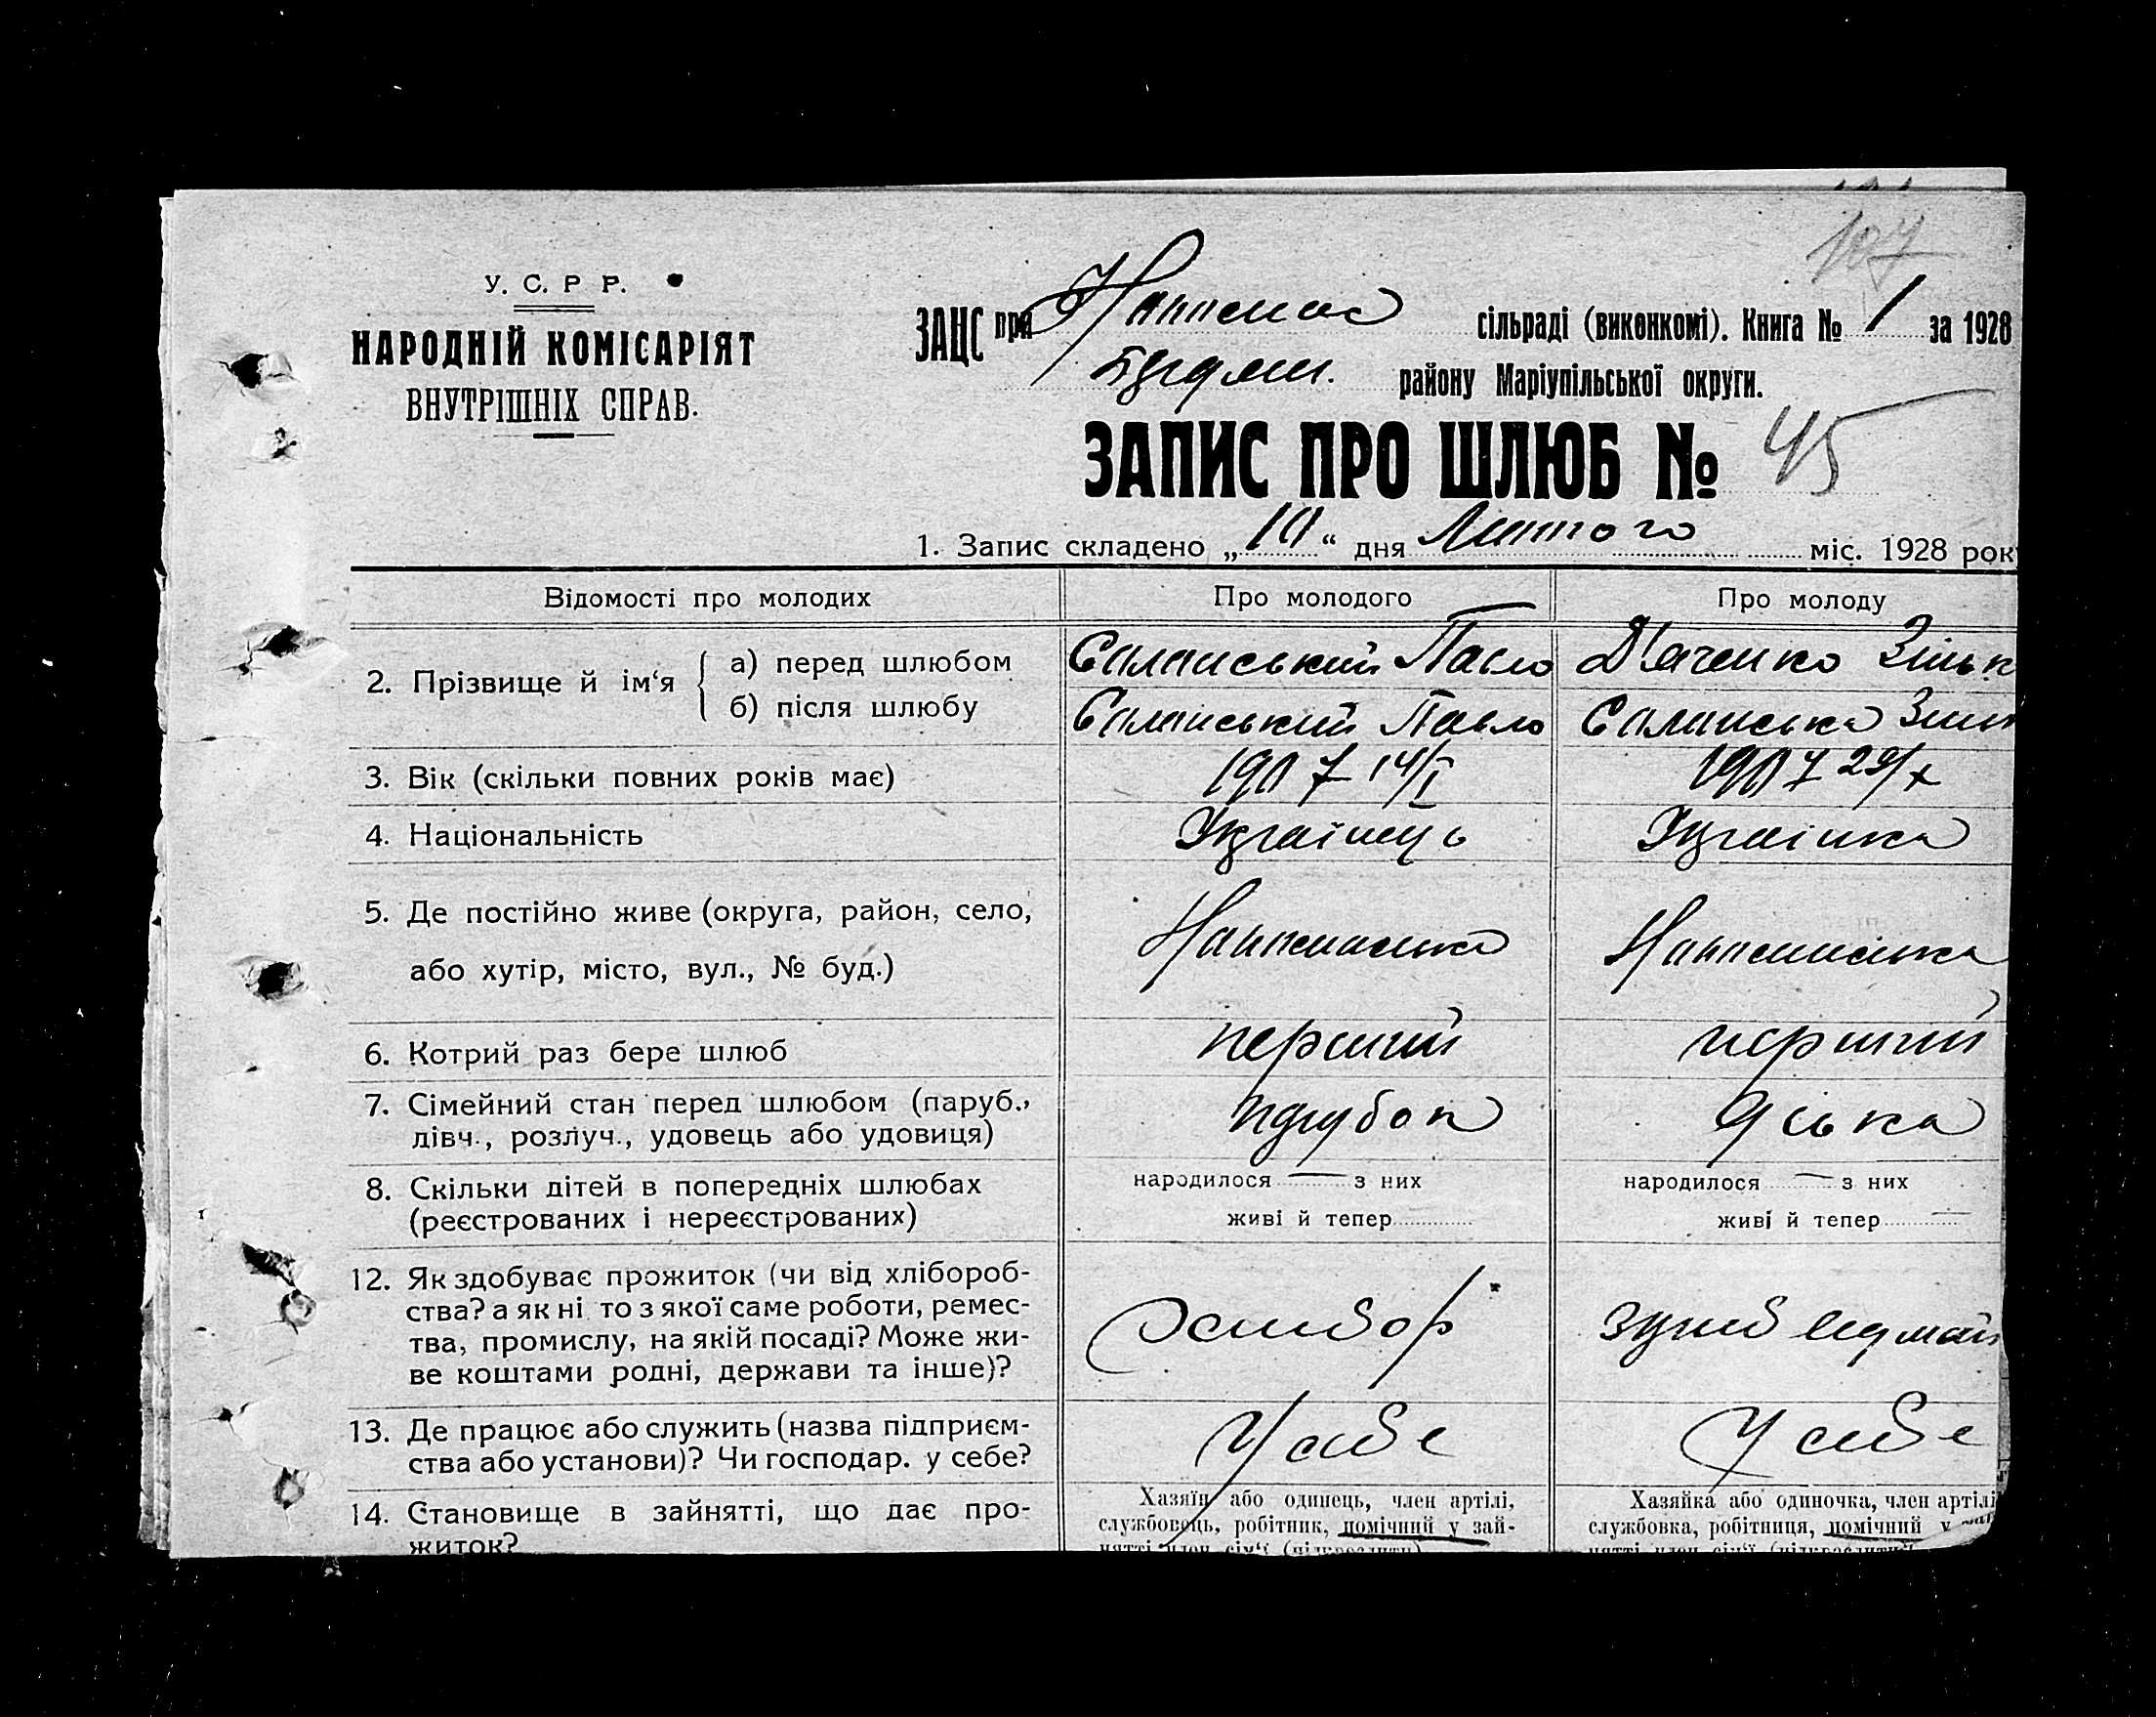 107
У. С. Р Р.
НАРОДНІЙ КОМІСАРІЯТ
ВНУТРІШНІХ СПРАВ.
ЗАЦС при сільраді (виконкомі). Книга № 1 за 1928
району Маріупільської округи.
ЗАПИС ПРО ШЛЮБ № 45
1. Запис складено „10“ дня Лютого міс. 1928 рок
Відомості про молодих
Про молодого
Про молоду
2. Прізвище й ім‘я
а) перед шлюбом
Саланський Павло
Дяченко
б) після шлюбу
Саланський Павло
Саланська
3. Вік (скільки повних років має)
1907 14/I
1907 29/X
4. Національність
Українець
Українка
5. Де постійно живе (округа, район, село,
або хутір, місто, вул., № буд.)
6. Котрий раз бере шлюб
перший
перший
7. Сімейний стан перед шлюбом (паруб.,
дівч., розлуч., удовець або удовиця)
парубок
8. Скільки дітей в попередніх шлюбах
(реєстрованих і нереєстрованих)
народилося — з них
живі й тепер
народилося — з них
живі й тепер —
12. Як здобуває прожиток (чи від хлібороб-
ства? а як ні то з якої саме роботи, ремес-
тва, промислу, на якій посаді? Може жи-
ве коштами родні, держави та інше)?
13. Де працює або служить (назва підприєм-
ства або установи)? Чи господар. у себе?
У себе
У себе
14. Становище в зайнятті, що дає про-
житок?
Хазяїн або одинець, член артілі,
службовець, робітник, помічний у зай-
нятті член сім‘ї (підкреслити)
Хазяйка або одиночка, член артілі
службовка, робітниця, помічний у
нятті член сім‘ї (підкреслити)